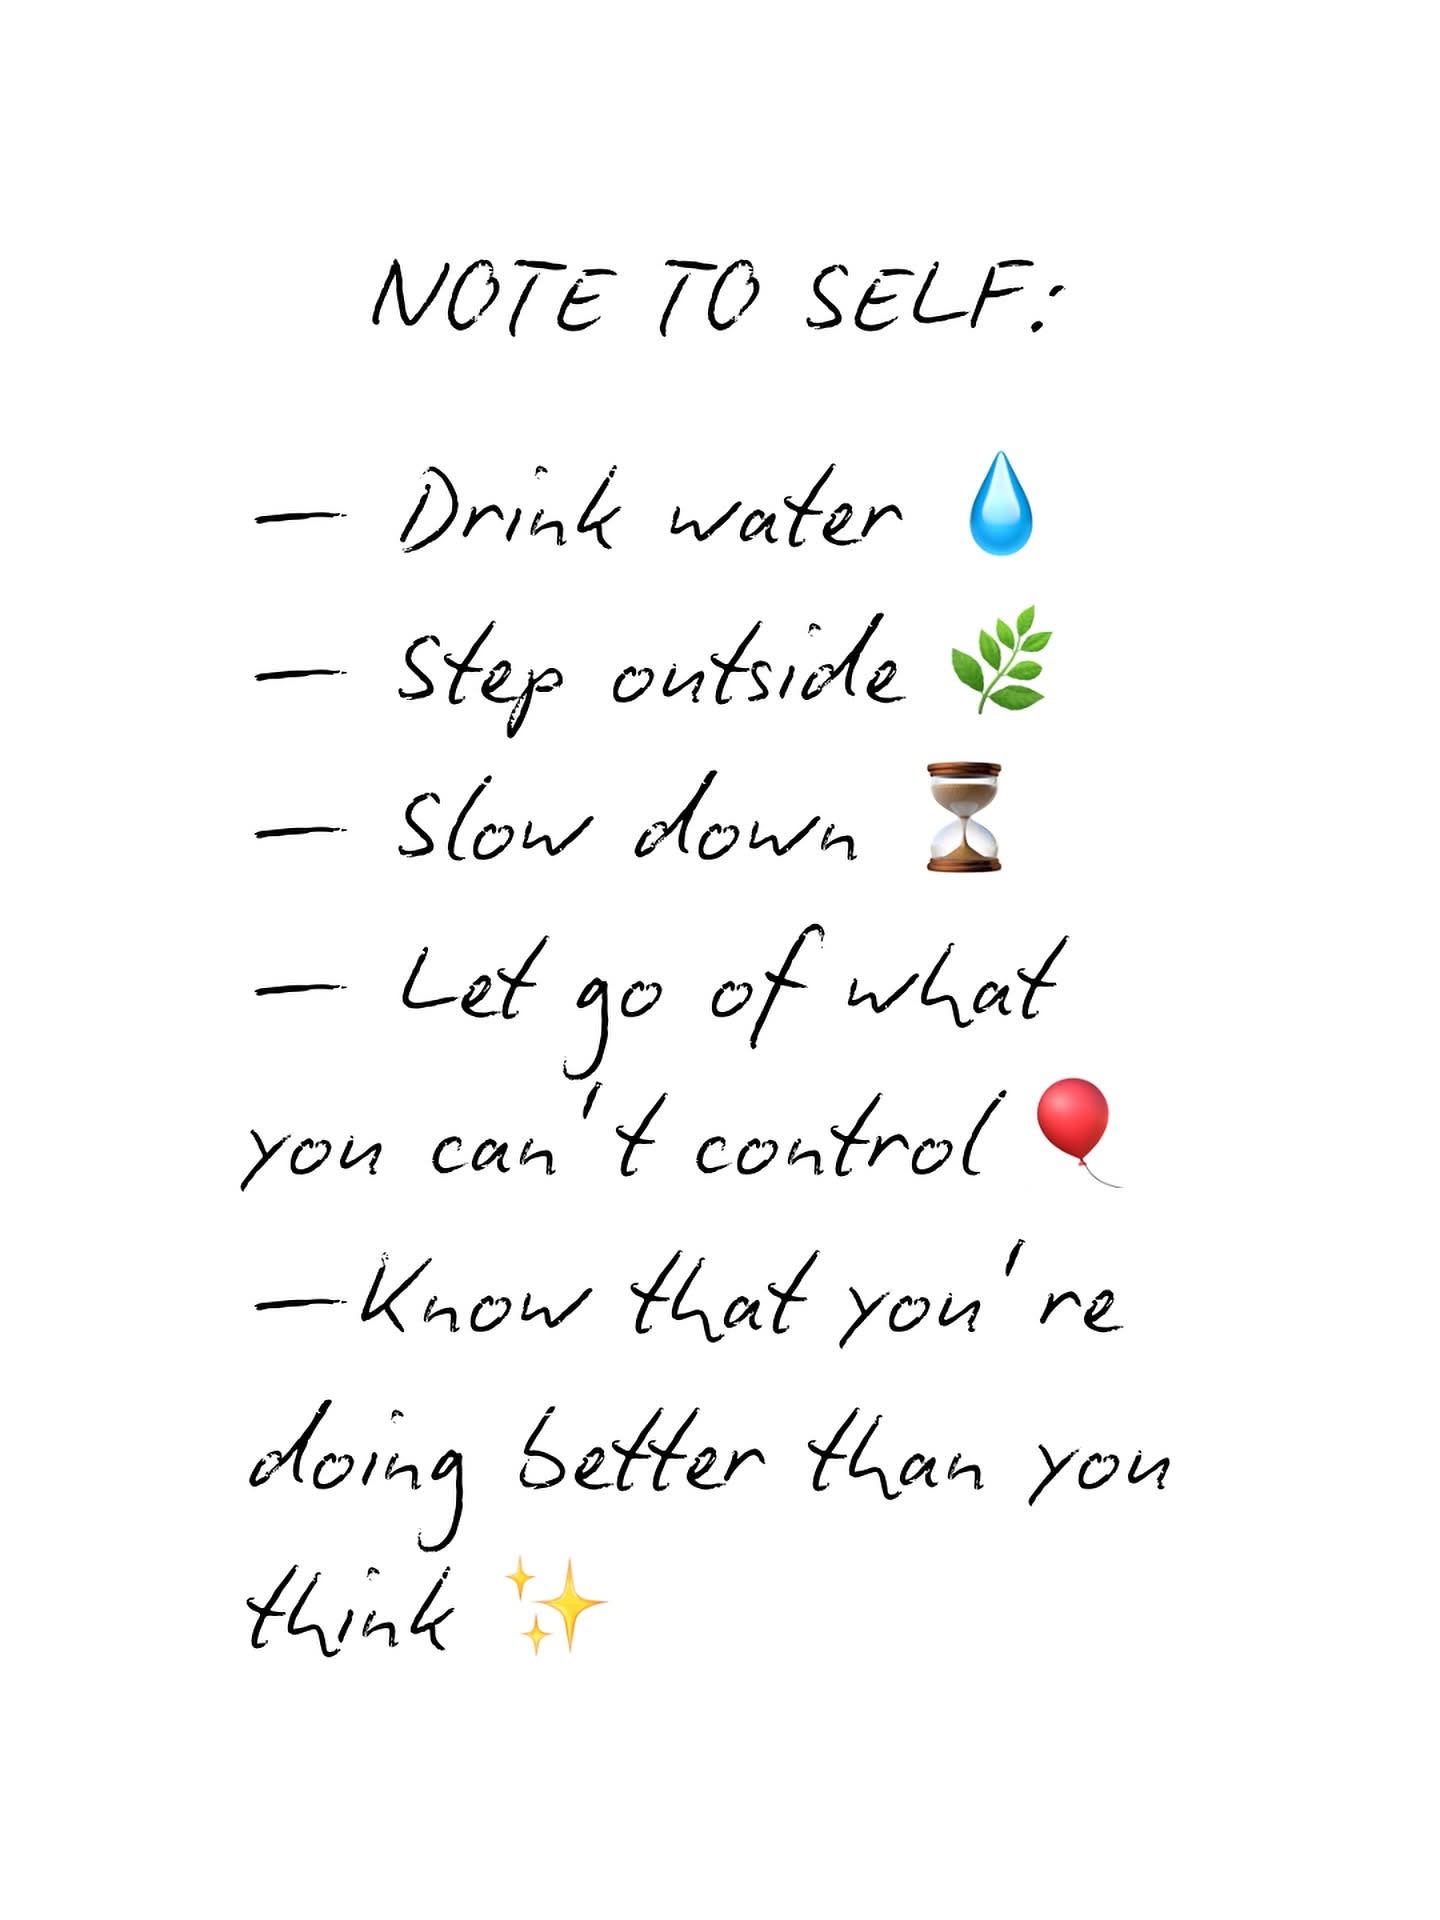 NOTE TO SELF:
— Drink water 💧
— Step outside 🌿
— Slow down ⏳
— Let go of what
you can't control 🎈
—Know that you're
doing better than you
think ✨